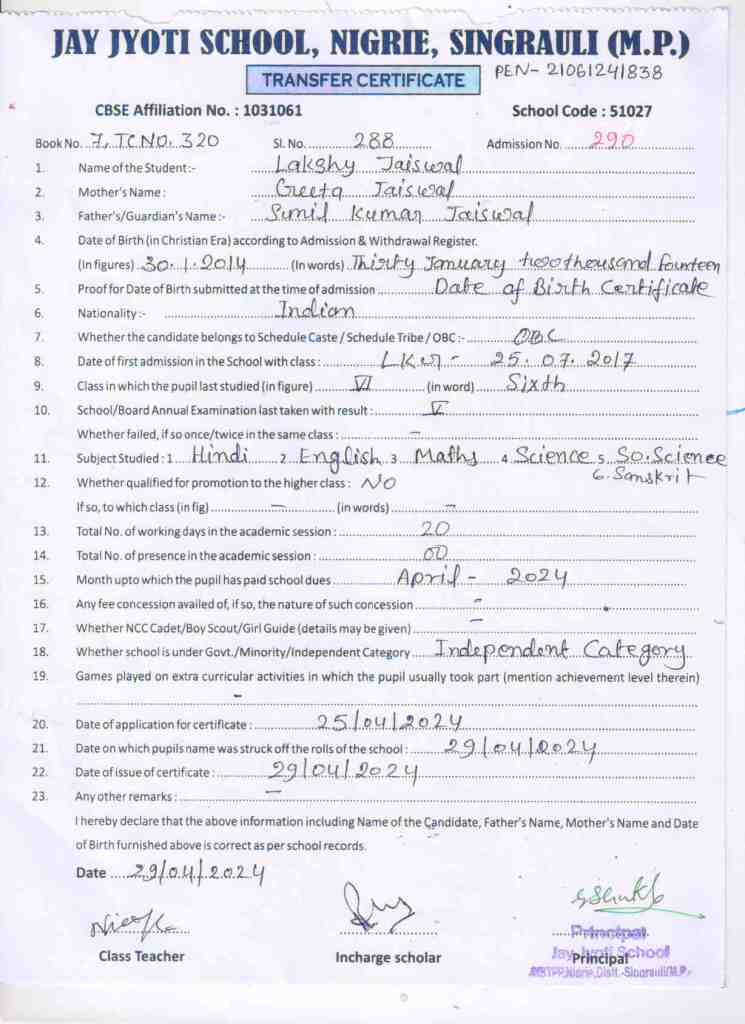 JAY JYOTI SCHOOL, NIGRIE, SINGRAULI (M.P.)
TRANSFER CERTIFICATE PEN- 21061241838
CBSE Affiliation No. : 1031061 School Code : 51027
Book No. 7, TC NO. 320 Sl. No. 288 Admission No. 290
1. Name of the Student :- Lakshy Jaiswal
2. Mother's Name : Geeta Jaiswal
3. Father's/Guardian's Name :- Sunil Kumar Jaiswal
4. Date of Birth (in Christian Era) according to Admission & Withdrawal Register.
(In figures) 30.1.2014 (In words) Thirty January twothousand fourteen
5. Proof for Date of Birth submitted at the time of admission Date of Birth Certificate
6. Nationality :- Indian
7. Whether the candidate belongs to Schedule Caste / Schedule Tribe / OBC :- OBC
8. Date of first admission in the School with class : LKG - 25.07.2017
9. Class in which the pupil last studied (in figure) VI (in word) Sixth
10. School/Board Annual Examination last taken with result : V
Whether failed, if so once/twice in the same class : -
11. Subject Studied : 1 Hindi 2 English 3 Maths 4 Science 5 So.Science
6. Sanskrit
12. Whether qualified for promotion to the higher class : NO
If so, to which class (in fig) - (in words) -
13. Total No. of working days in the academic session : 20
14. Total No. of presence in the academic session : 00
15. Month upto which the pupil has paid school dues April - 2024
16. Any fee concession availed of, if so, the nature of such concession -
17. Whether NCC Cadet/Boy Scout/Girl Guide (details may be given) -
18. Whether school is under Govt./Minority/Independent Category Independent Category
19. Games played on extra curricular activities in which the pupil usually took part (mention achievement level therein)
-
20. Date of application for certificate : 25/04/2024
21. Date on which pupils name was struck off the rolls of the school : 29/04/2024
22. Date of issue of certificate : 29/04/2024
23. Any other remarks : -
I hereby declare that the above information including Name of the Candidate, Father's Name, Mother's Name and Date
of Birth furnished above is correct as per school records.
Date 29/04/2024
Principal
Jay Jyoti School
Class Teacher Incharge scholar Principal
Nigrie, Distt.-Singrauli(M.P.)